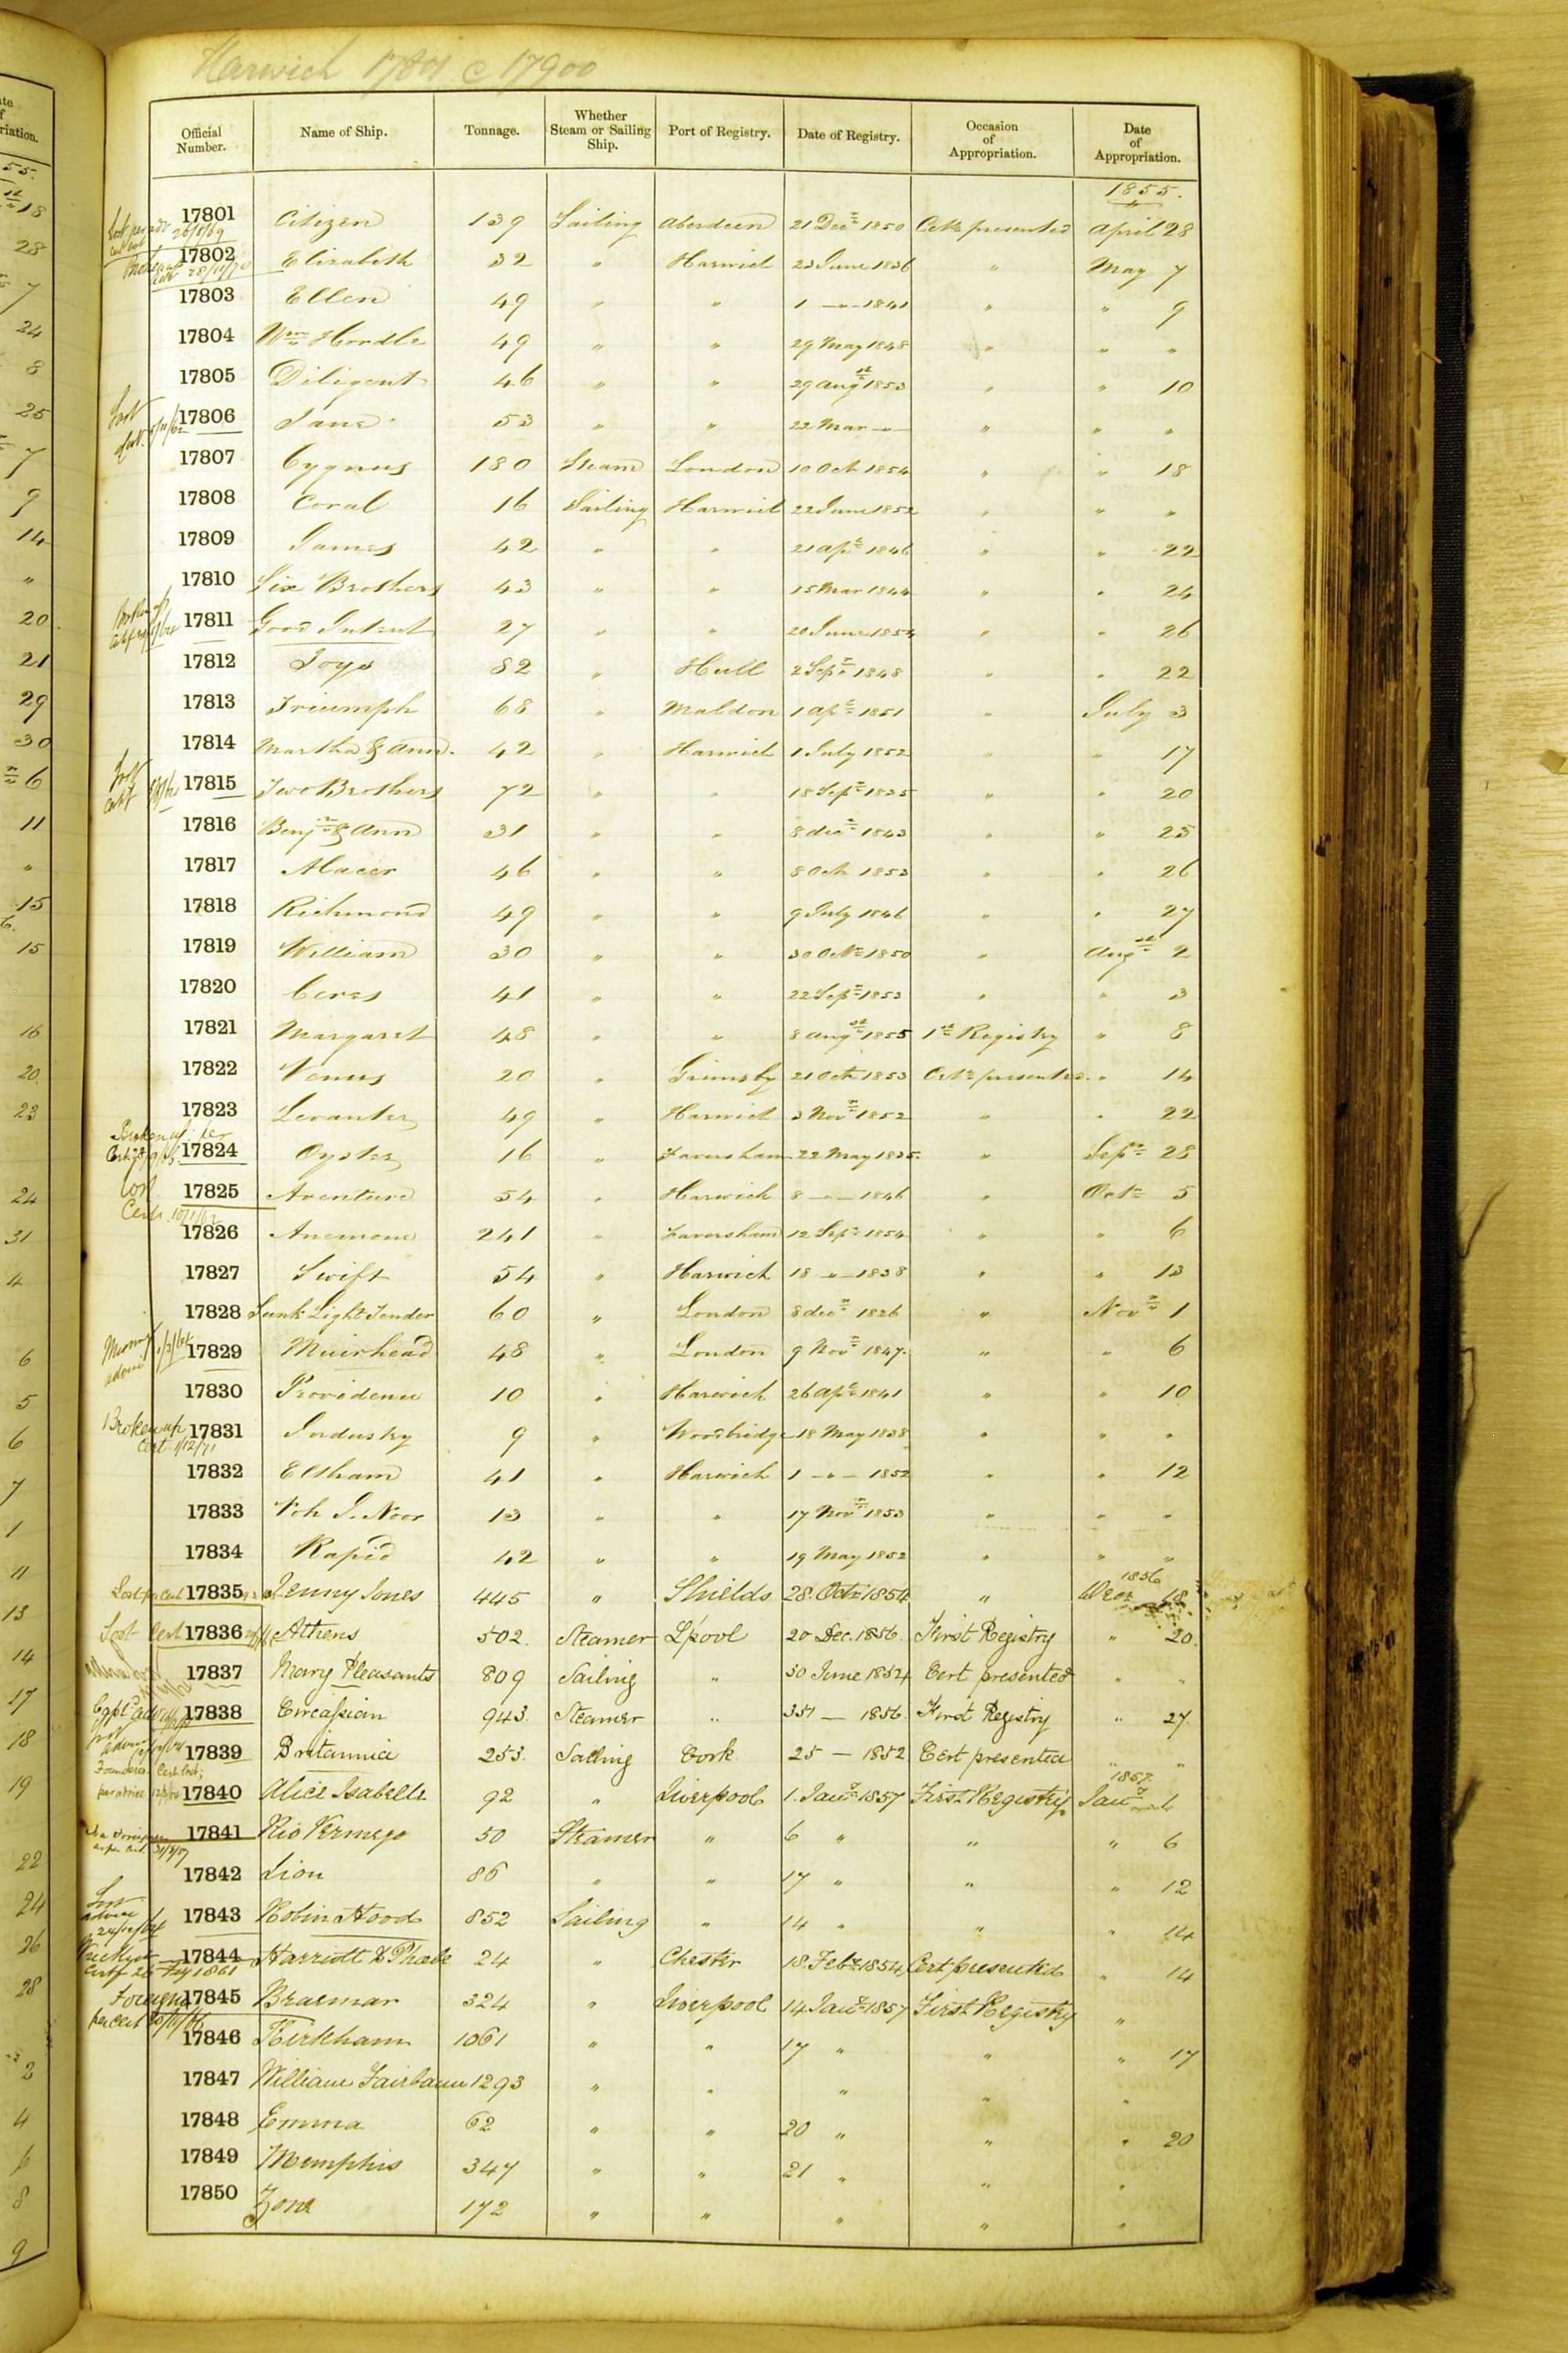 Harwich 17801 @ 17900
Official Number. Name of Ship. Tonnage. Whether Steam or Sailing Ship. Port of Registry. Date of Registry. Occasion of Appropriation. Date of Appropriation.
1855.
17801 Citizen 139 Sailing Aberdeen 21 Decr 1850 Cete presented April 28
17802 Elizabeth 32 " Harwich 23 June 1836 " May 7
17803 Ellen 49 " " 1 — " — 1841 " " 9
17804 Wm Hordle 49 " " 29 May 1848 " " "
17805 Diligent 46 " " 29 Augst 1853 " " 10
17806 Jane 53 " " 22 Mar — " — " " "
17807 Cygnus 180 Steam London 10 Oct 1854 " " 18
17808 Coral 16 Sailing Harwich 22 June 1852 " " "
17809 James 42 " " 21 Apl 1846 " " 22
17810 Six Brothers 43 " " 15 Mar 1844 " " 24
17811 Good Intent 27 " " 20 June 1854 " " 26
17812 Joys 82 " Hull 2 Sepr 1848 " " 22
17813 Triumph 68 " Maldon 1 Apl 1851 " July 3
17814 Martha & Ann. 42 " Harwich 1 July 1852 " " 17
17815 Two Brothers 72 " " 18 Sepr 1835 " " 20
17816 Benjn & Ann 31 " " 8 decr 1843 " " 25
17817 Alacer 46 " " 8 Oct 1853 " " 26
17818 Richmond 49 " " 9 July 1846 " " 27
17819 William 30 " " 30 Octr 1850 " Augst 2
17820 Ceres 41 " " 22 Sepr 1853 " " 3
17821 Margaret 48 " " 8 Augst 1855 1st Registry " 8
17822 Venus 20 " Grimsby 21 Oct 1853 Cete presented. " 14
17823 Levanter 49 " Harwich 3 Novr 1852 " " 22
17824 Oyster 16 " Faversham 22 May 1835 " Sepr 28
17825 Aventure 54 " Harwich 8 — " — 1846 " Octr 5
17826 Anemone 241 " Faversham 12 Sepr 1854 " " 6
17827 Swift 54 " Harwich 18 — " — 1838 " " 13
17828 Sunk Light Tender 60 " London 8 decr 1826 " Novr 1
17829 Muirhead 48 " London 9 Novr 1847. " " 6
17830 Providence 10 " Harwich 26 Apl 1841 " " 10
Broken up Cert 1/12/71
17831 Industry 9 " Woodbridge 18 May 1838 " " "
17832 Eltham 41 " Harwich 1 — " — 1852 " " 12
17833 13 " " 17 Novr 1853 " " "
17834 Rapid 42 " " 19 May 1852 " " "
1856
Lost per Cert 17835 Jenny Jones 445 " Shields 28. Octr 1854 " Decr 18
Lost Cert 17836 Athens 502. Steamer L'pool 20 Dec. 1856 First Registry " 20.
17837 Mary Pleasants 809 Sailing " 30 June 1854 Cert presented " "
17838 Circassian 943. Steamer " — 1856. First Registry " 27.
17839 Britannia 253. Sailing Cork 25 — 1852 Cert presented " "
1857.
17840 Alice Isabelle 92 " Liverpool 1. Jany 1857 First Registry Jany 1
17841 Rio Vermego 50 Steamer " 6 " " " 6
17842 Lion 86 " " 17 " " " 12
Lost advice
17843 Robin Hood 852 Sailing " 14 " " " 14
17844 Harriott & Phœbe 24 " Chester 18. Feby 1854 Cert presented " 14
Foreign per cert
17845 Braemar 324 " Liverpool 14 Jany 1857 First Registry "
17846 Kirkham 1061 " " 17 " " " 17
17847 William Fairbairn 1293 " " " " "
17848 Emma 62 " " 20 " " " 20
17849 Memphis 347 " " 21 " " "
17850 Zone 172 " " " " "